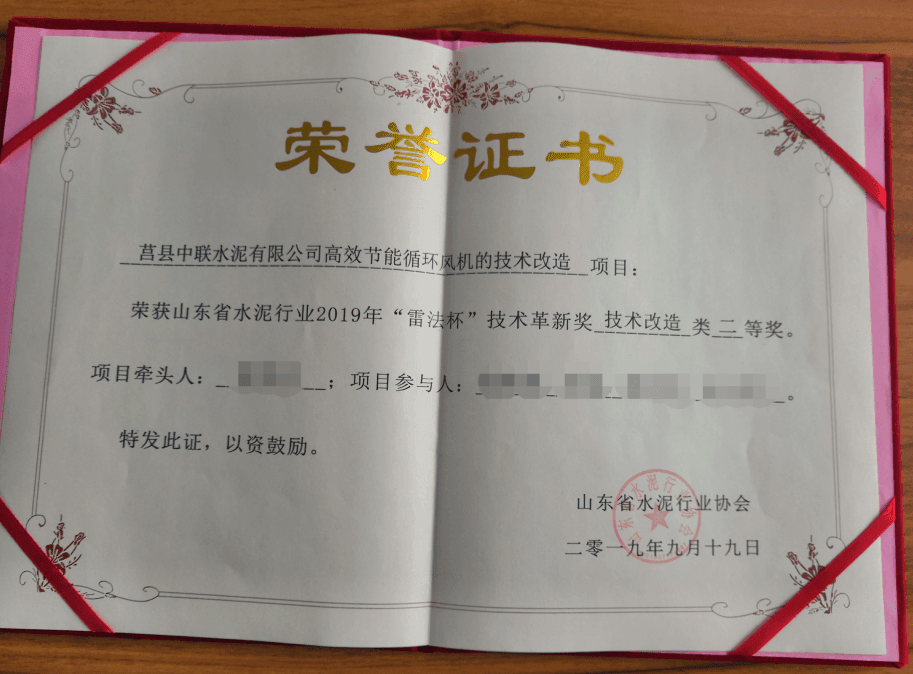 荣誉证书
莒县中联水泥有限公司高效节能循环风机的技术改造 项目：
荣获山东省水泥行业2019年“雷法杯”技术革新奖 技术改造 类 二 等奖。
项目牵头人： ；项目参与人： 。
特发此证，以资鼓励。
山东省水泥行业协会
二零一九年九月十九日